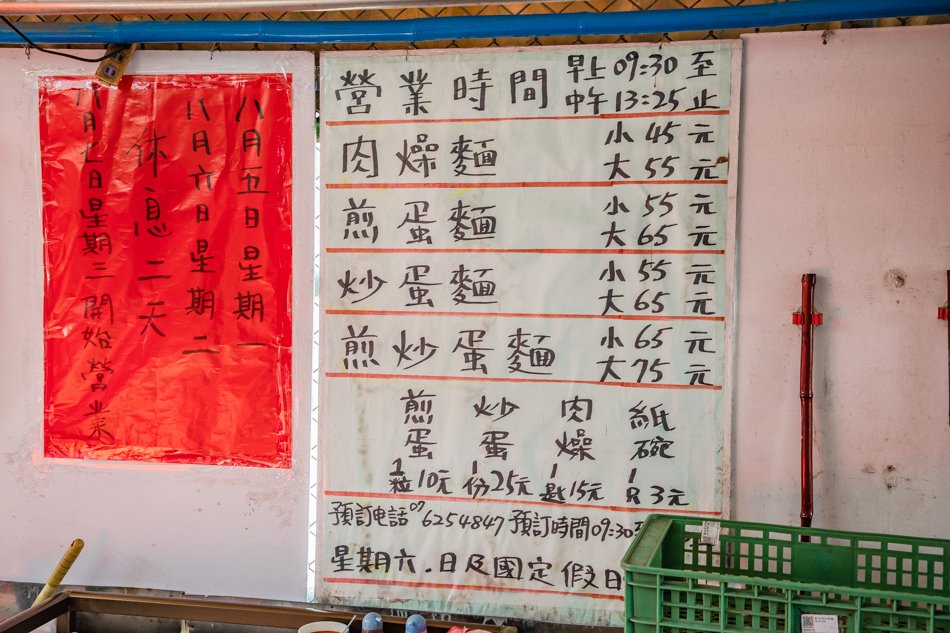 八月五日星期一
八月六日星期二
休息二天
八月七日星期三開始營業
營業時間 早上09:30至
中午13:25止
肉燥麵 小45元
大55元
煎蛋麵 小55元
大65元
炒蛋麵 小55元
大65元
煎炒蛋麵 小65元
大75元
煎蛋 1粒10元
炒蛋 1份25元
肉燥 1匙15元
紙碗 1只3元
預訂電話07 6254847 預訂時間09:30
星期六.日及國定假日